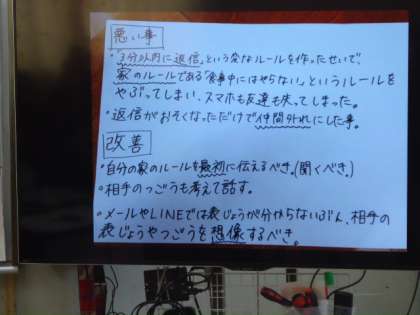 悪い事
・「3分以内に返信」という変なルールを作ったせいで、
家のルールである「食事中にはやらない」というルールを
やぶってしまい、スマホも友達も失ってしまった。
・返信がおそくなっただけで仲間外れにした事。
改善
・自分の家のルールを最初に伝えるべき。(聞くべき。)
・相手のつごうも考えて話す。
・メールやLINEでは表じょうが分からないぶん、相手の
表じょうやつごうを想像するべき。